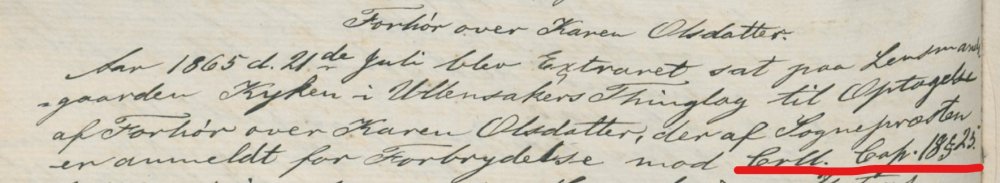 Forhør over Karen Olsdatter.
Aar 1865 d. 21de Juli blev Extraret sat paa Lensmands
-gaarden Kyken i Ullensakers Thinglag til Optagelse
af Forhør over Karen Olsdatter, der af Sognepræsten
er anmeldt for Forbrydelse mod Crll. Cap. 18, § 25.